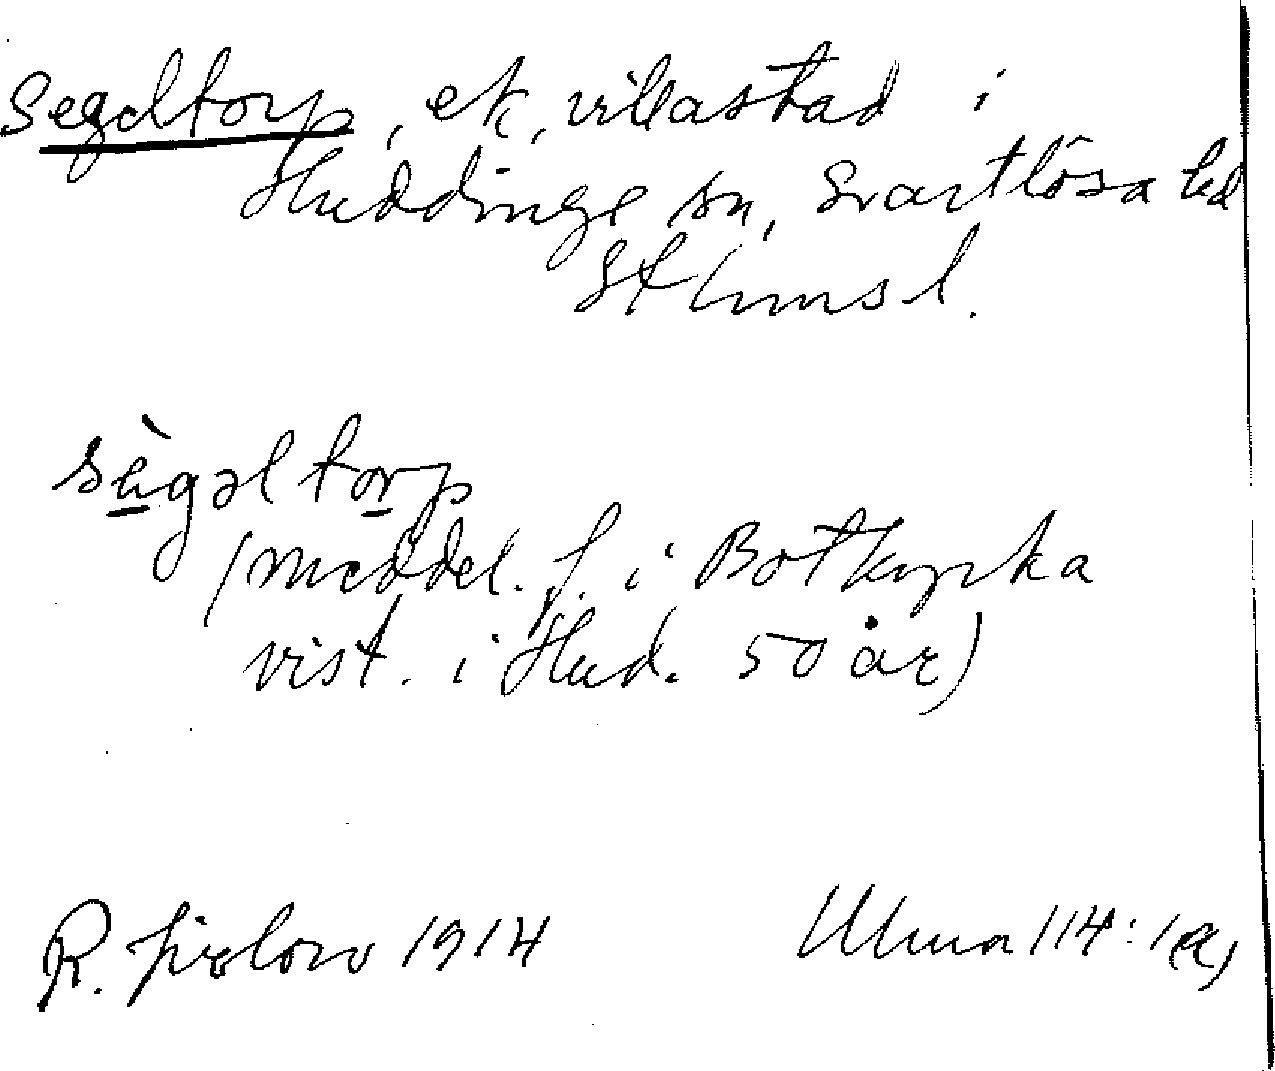 Segeltorp, ek, villastad i
Huddinge sn, Svartlösa hd
Sthlms l.
sègəltorp
(meddel. f. i Botkyrka
vist. i Hud. 50 år)
R. 1914 Ulma 114:1(a)